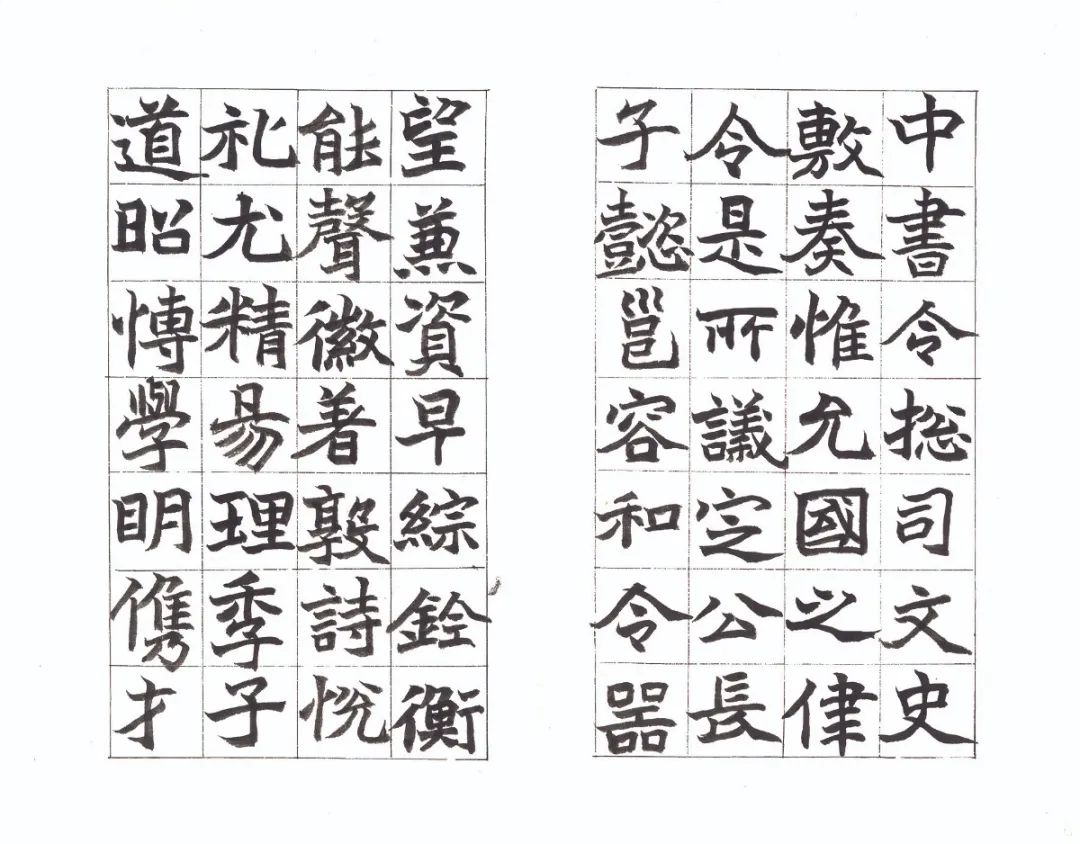 中書令捴司文史
敷奏惟允國之律
令是所議定公長
子懿邕容和令器
望兼資早綜銓衡
能聲徽著敦詩悅
礼尤精易理季子
道昭博學明儁才